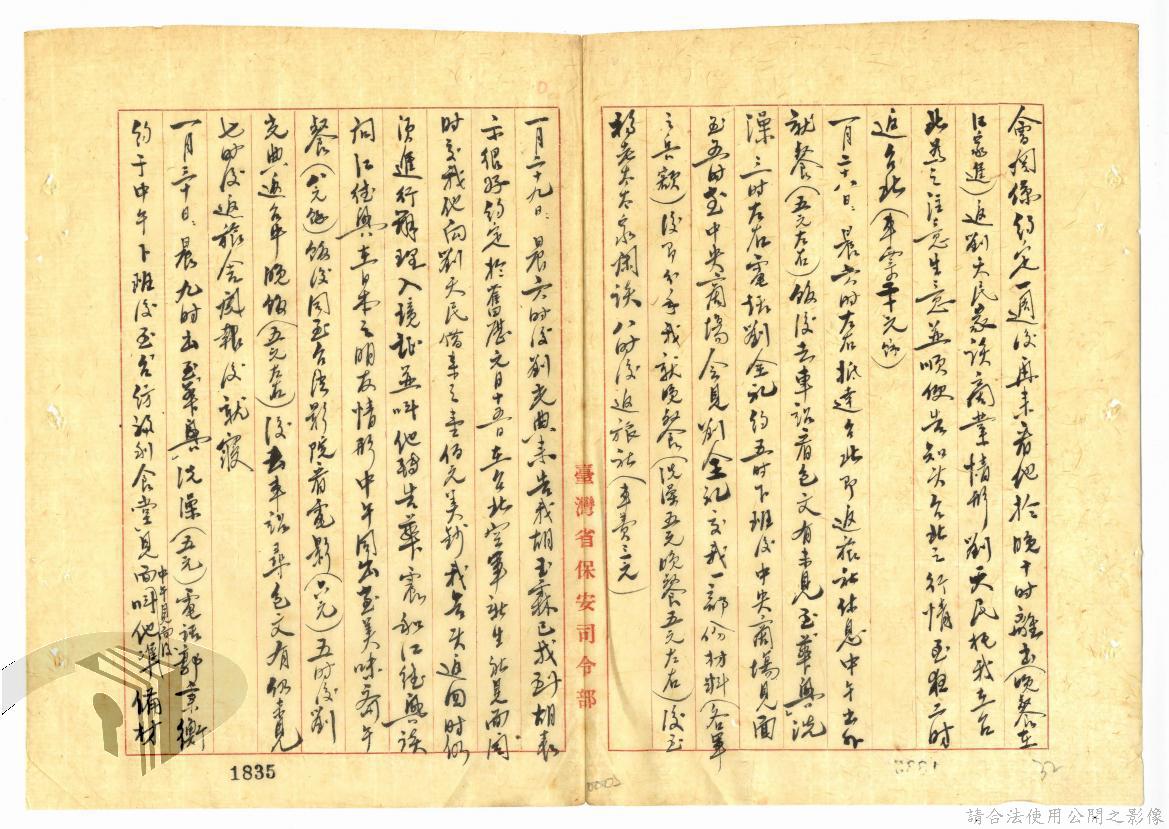 會關係約定一週後再來看他於晚十时離去（晚餐在
江家進）返劉天民家談商業情形劉天民托我在台
北為之注意生意並順便告知次台北之行情至夜二时
返台北（車票二十元餘）
一月二十八日：晨六时左右抵達台北即返旅社休息中午出外
就餐（五元左右）飯後去車站看包文有未見至華興洗
澡三时左右電話劉全礼約五时下班後中央商場見面
至五时至中央商場会見劉全礼交我一部份材料（各軍
之兵額）後即分手我就晚餐（洗澡五元晚餐五元左右）後至
楊老太太家閑談八时後返旅社（車费三元）
臺灣省保安司令部
一月二十九日：晨六时後劉光典來告我胡玉麻已找到胡表
示很好約定於舊歷元日十五日在台北空軍新生社見面同
时交我他向劉天民借來之壹佰元美鈔我告次返回时仍
須進行辦理入境証並叫他轉告華震和江德興談
詞江德興在日本之朋友情形中午同出至美味齋午
餐（八元餘）飯後同至台湾影院看電影（六元）五时後劉
光典返台中晚飯（五元左右）後去車站尋包文有仍未見
七时後返旅舍閱報後就寢
一月三十日：晨九时去華興洗澡（五元）電话郭秉衡
約于中午下班後至台紡福利食堂見面叫他準備材
中午見面後
1835
請合法使用公開之影像